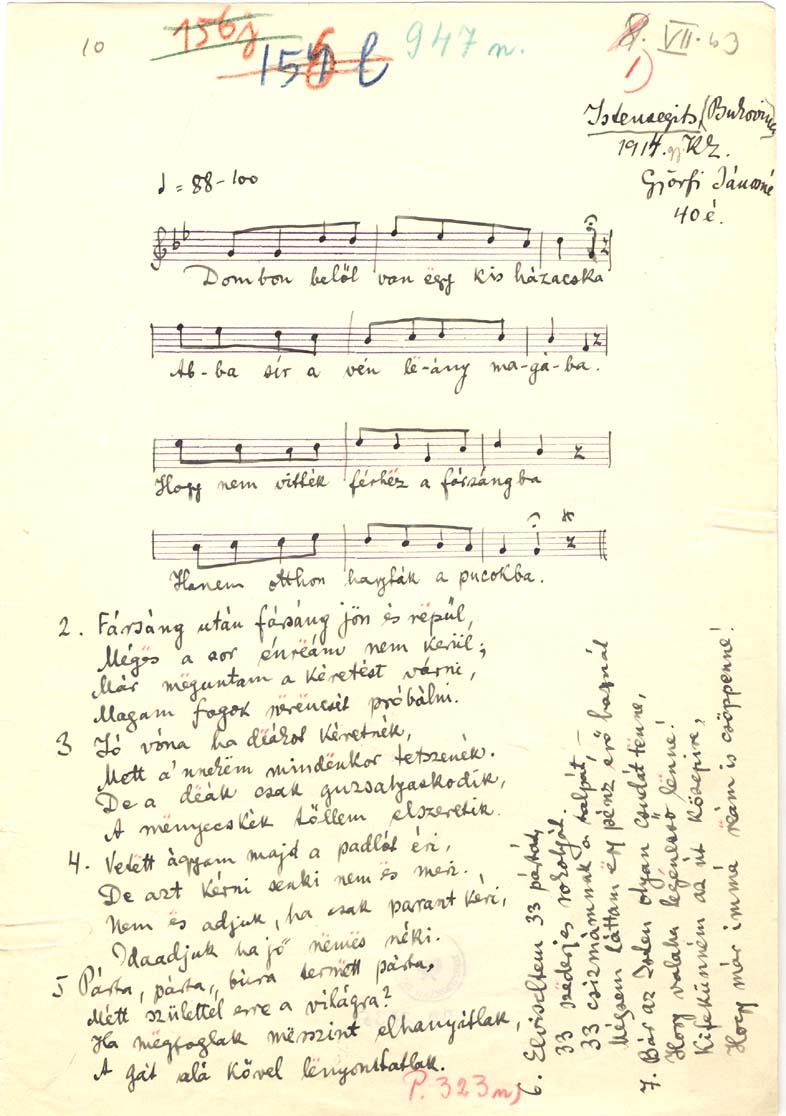 10
156j
154 l
947 n.
VII. 63
1)
Istensegits (Bukovina)
1914. gy. KZ.
Györfi Jánosné
40 é.
♩ = 88-100
Dombon belől van ëgy kis házacska
Ab-ba sír a vén lë-ány ma-gá-ba.
Hogy nem vitték férhëz a fársángba
Hanem otthon hagyták a pucokba.
2. Fársáng után fársáng jön és rëpűl,
Mégës a sor énrëám nem kerül;
Már mëguntam a kéretést várni,
Magam fogok szërëncsét próbálni.
3 Jó vóna ha dëákot kéretnék,
Mett a' nnekëm mindënkor tetszenék.
De a dëák csak guzsalyaskodik,
A mënyecskék tőllem elszeretik.
4. Vetëtt ágyam majd a padlót éri,
De azt kérni senki nem ës meri.
Nem ës adjuk, ha csak parant kéri,
Idaadjuk ha jő nëmës néki.
5 Párta, párta, búra termëtt párta,
Métt születtél erre a világra?
Ha mëgfoglak mësszint elhanyitlak,
A gát alá kővel lënyomtatlak.
6. Elviseltem 33 pártát,
33 szëderjes rokolyát.
33 csizmámnak a talpát, –
Mégsem láttam ëgy pénz érő hasznát
7. Bár az Isten olyan csudát tënne,
Hogy valaha legén ësső lënne!
Kifekünném az út közepire,
Hogy már immá rëám is csöppenne!
P. 323 n)